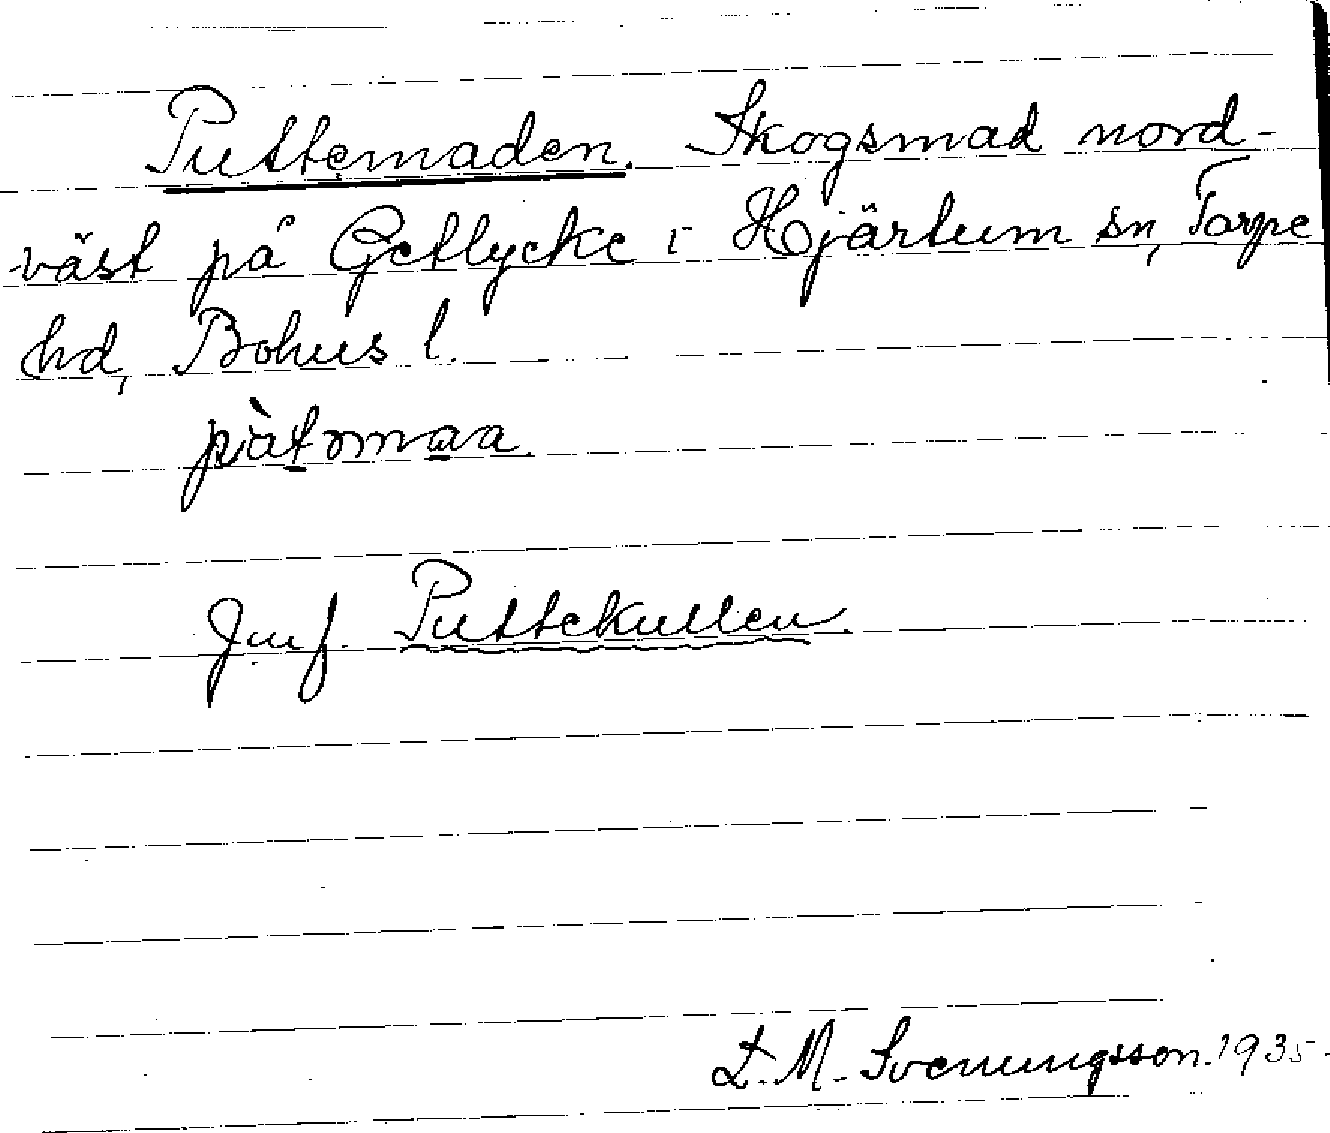 Puttemaden. Skogsmad nord-
väst på Getlycke i Hjärtum sn, Torpe
hd, Bohus l.
pàtmaa.
Jmf. Puttekullen.
L. M. Svenungsson. 1935.